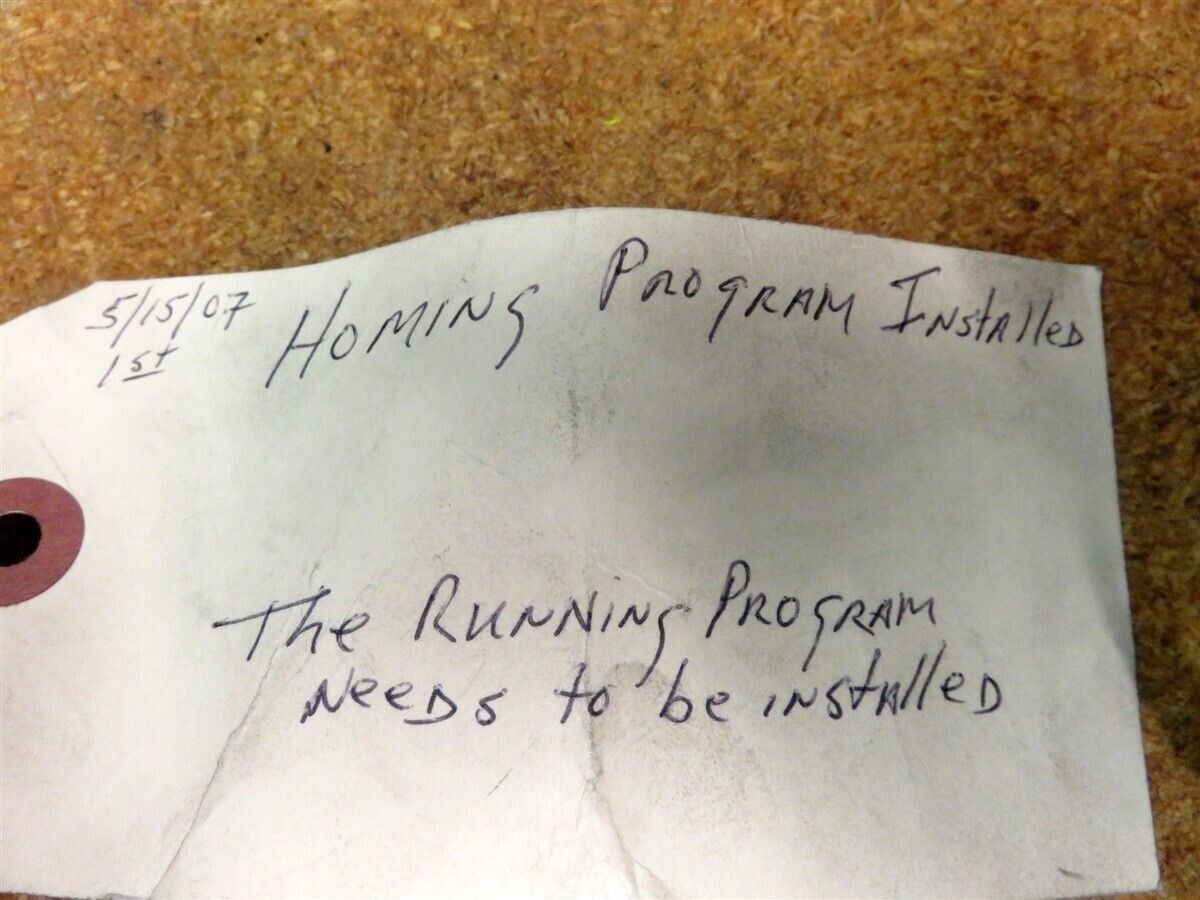 5/15/07 Homing Program Installed
1st
The Running Program
Needs to be installed